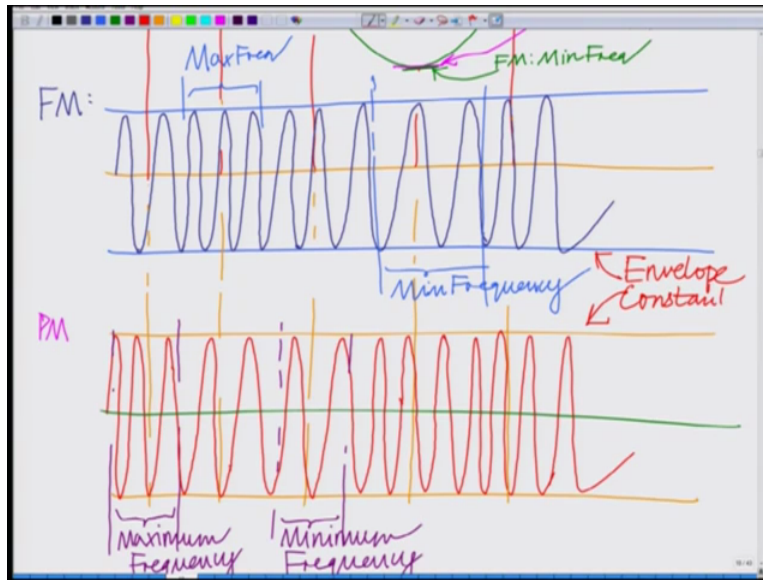 Max Freq
FM: Min Freq
FM:
Min Frequency
Envelope
Constant
PM
Maximum
Frequency
Minimum
Frequency